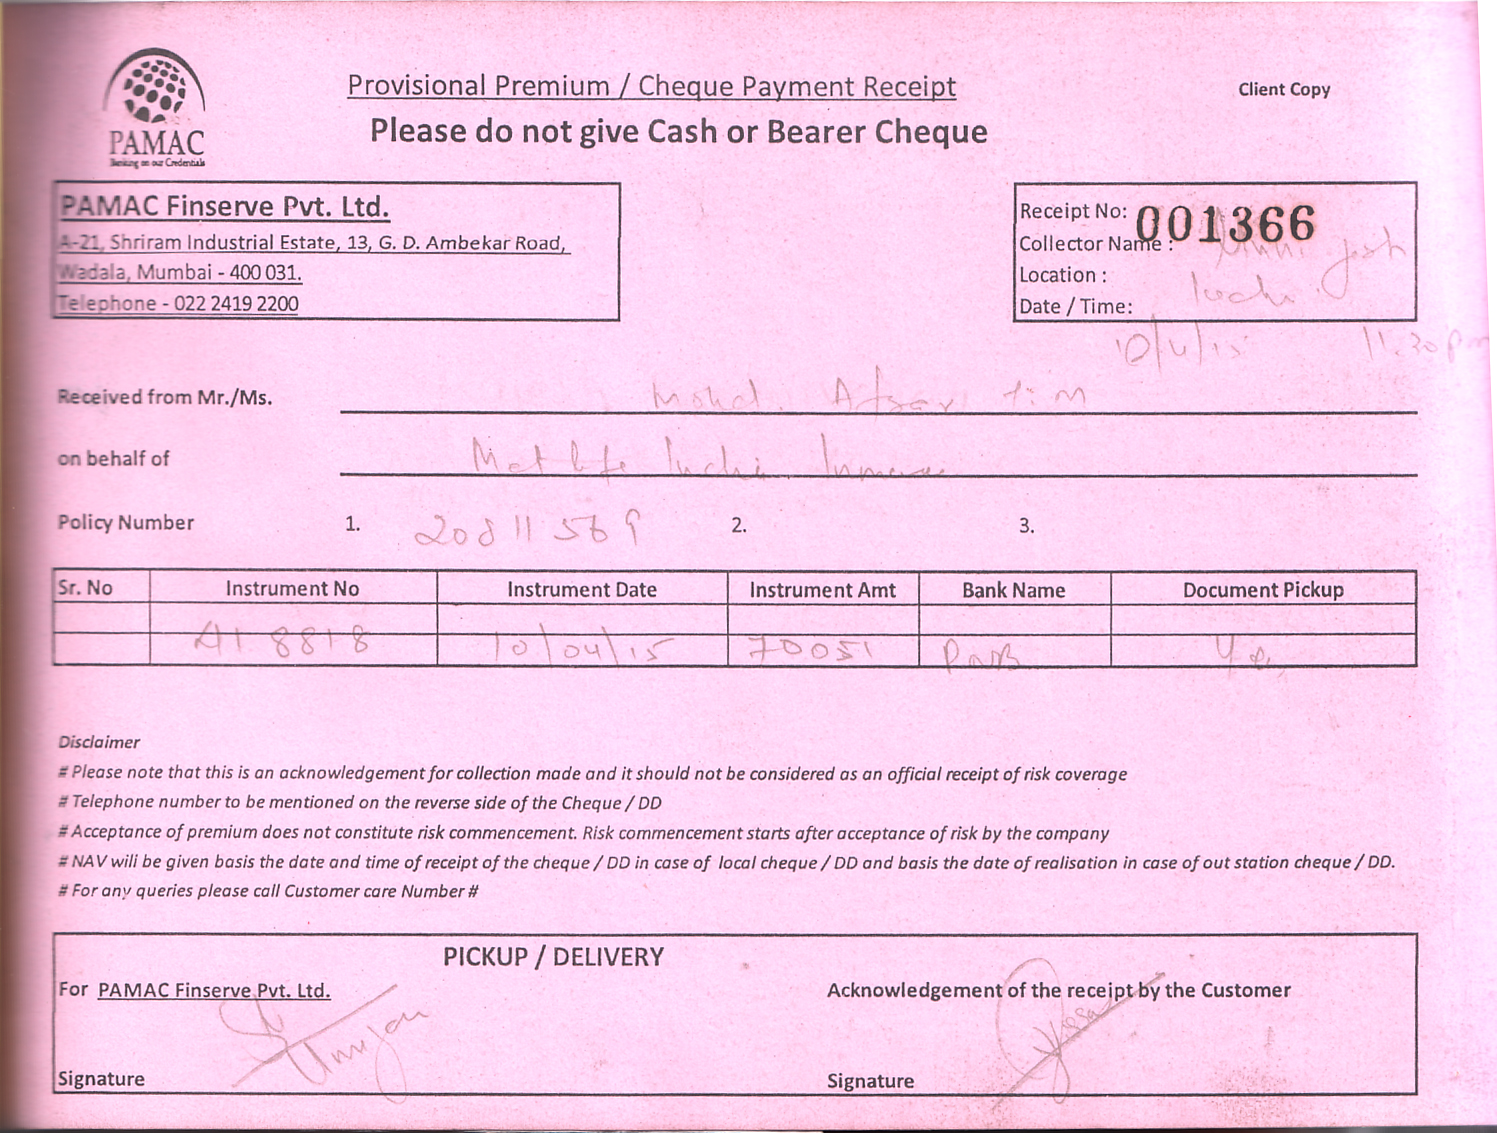 Provisional Premium / Cheque Payment Receipt
Client Copy
Please do not give Cash or Bearer Cheque
PAMAC
Banking on our Credentials
PAMAC Finserve Pvt. Ltd.
A-21, Shriram Industrial Estate, 13, G. D. Ambekar Road,
Wadala, Mumbai - 400 031.
Telephone - 022 2419 2200
Receipt No: 001366
Collector Name :
Location :
Date / Time:
11.30 pm
Received from Mr./Ms. Mohd. Afsar
on behalf of Met life India
Policy Number 1. 20811569 2. 3.
Sr. No Instrument No Instrument Date Instrument Amt Bank Name Document Pickup
418818 10/04/15 70051 PNB
Disclaimer
# Please note that this is an acknowledgement for collection made and it should not be considered as an official receipt of risk coverage
# Telephone number to be mentioned on the reverse side of the Cheque / DD
# Acceptance of premium does not constitute risk commencement. Risk commencement starts after acceptance of risk by the company
# NAV will be given basis the date and time of receipt of the cheque / DD in case of local cheque / DD and basis the date of realisation in case of out station cheque / DD.
# For any queries please call Customer care Number #
PICKUP / DELIVERY
For PAMAC Finserve Pvt. Ltd.
Acknowledgement of the receipt by the Customer
Signature
Signature